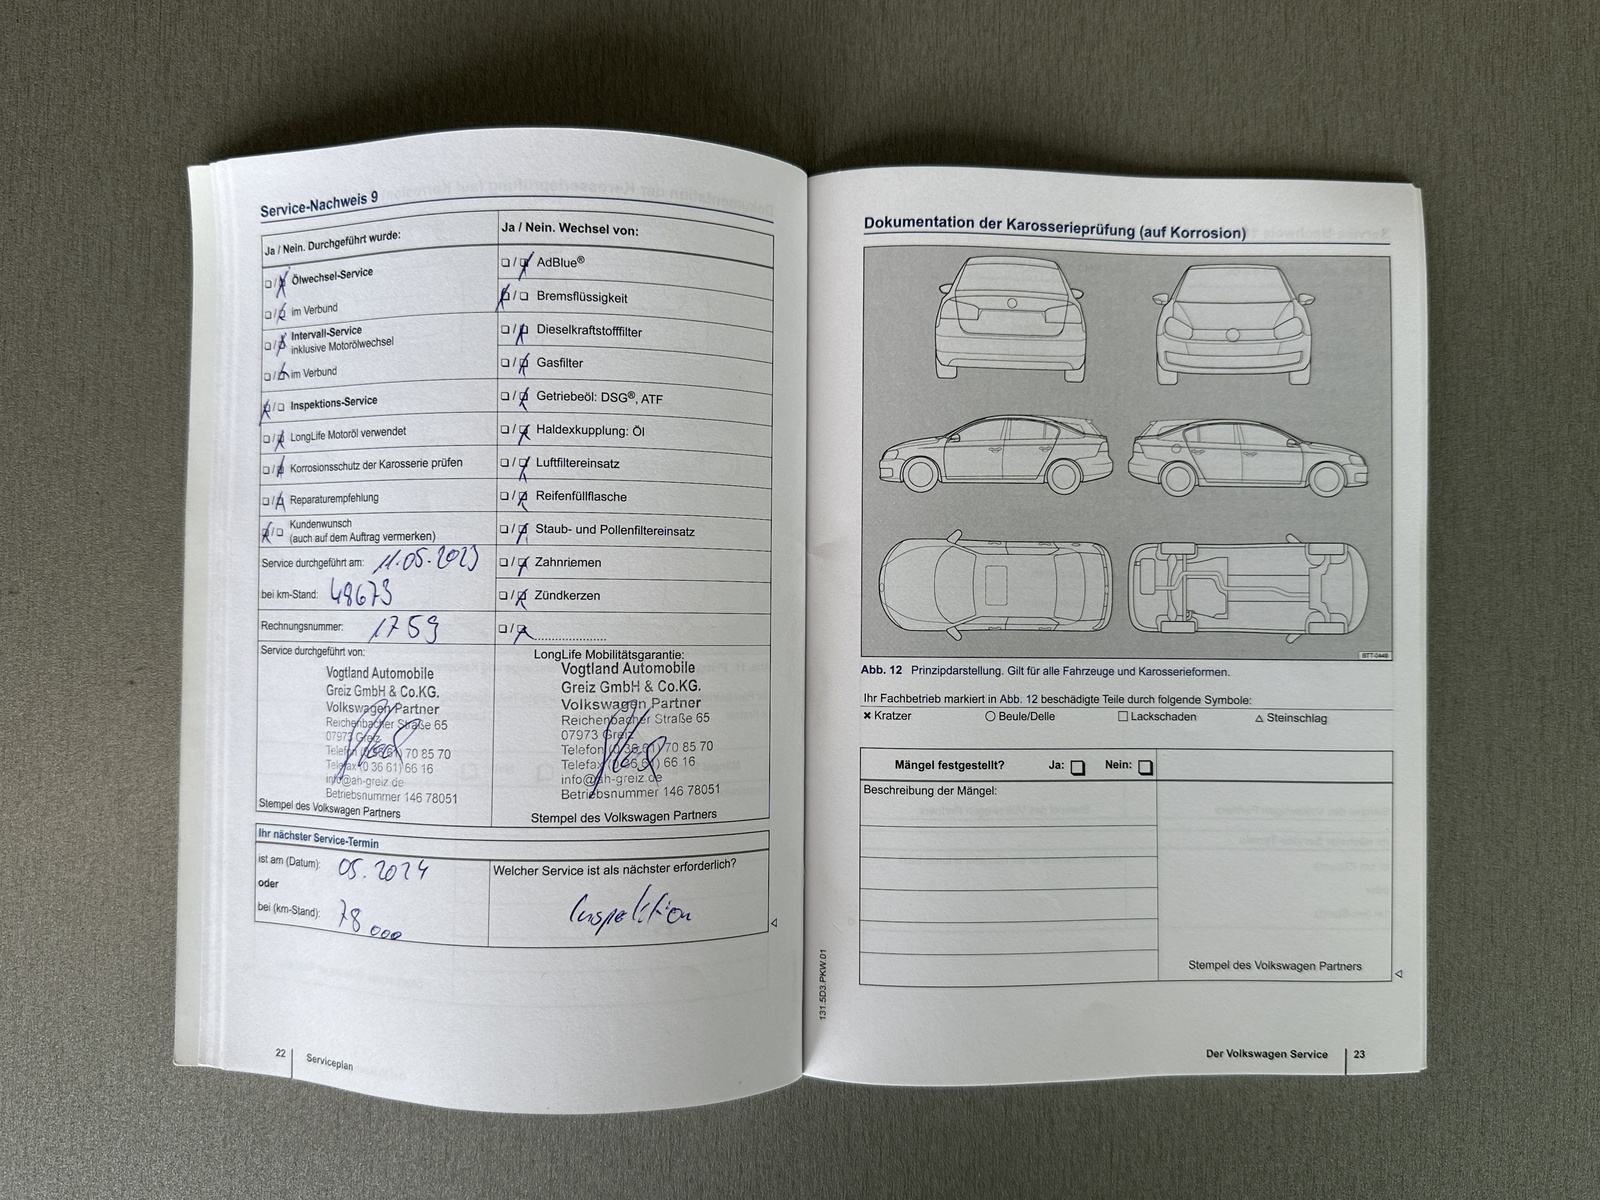 Service-Nachweis 9
Ja / Nein. Durchgeführt wurde:
❑ / ❑ Ölwechsel-Service
❑ / ❑ im Verbund
❑ / ❑ Intervall-Service
inklusive Motorölwechsel
❑ / ❑ im Verbund
❑ / ❑ Inspektions-Service
❑ / ❑ LongLife Motoröl verwendet
❑ / ❑ Korrosionsschutz der Karosserie prüfen
❑ / ❑ Reparaturempfehlung
❑ / ❑ Kundenwunsch
(auch auf dem Auftrag vermerken)
Service durchgeführt am: 11.05.2023
bei km-Stand: 48673
Rechnungsnummer: 1759
Service durchgeführt von:
Vogtland Automobile
Greiz GmbH & Co.KG.
Volkswagen Partner
Reichenbacher Straße 65
07973 Greiz
Telefon (0 36 61) 70 85 70
Telefax (0 36 61) 66 16
info@ah-greiz.de
Betriebsnummer 146 78051
Stempel des Volkswagen Partners
Ja / Nein. Wechsel von:
❑ / ❑ AdBlue®
❑ / ❑ Bremsflüssigkeit
❑ / ❑ Dieselkraftstofffilter
❑ / ❑ Gasfilter
❑ / ❑ Getriebeöl: DSG®, ATF
❑ / ❑ Haldexkupplung: Öl
❑ / ❑ Luftfiltereinsatz
❑ / ❑ Reifenfüllflasche
❑ / ❑ Staub- und Pollenfiltereinsatz
❑ / ❑ Zahnriemen
❑ / ❑ Zündkerzen
❑ / ❑ ......................
LongLife Mobilitätsgarantie:
Vogtland Automobile
Greiz GmbH & Co.KG.
Volkswagen Partner
Reichenbacher Straße 65
07973 Greiz
Telefon (0 36 61) 70 85 70
Telefax (0 36 61) 66 16
info@ah-greiz.de
Betriebsnummer 146 78051
Stempel des Volkswagen Partners
Ihr nächster Service-Termin
ist am (Datum): 05.2024
oder
bei (km-Stand): 78000
Welcher Service ist als nächster erforderlich?
Inspektion
22 Serviceplan
131.5D3.PKW.01
Dokumentation der Karosserieprüfung (auf Korrosion)
BTT-0449
Abb. 12 Prinzipdarstellung. Gilt für alle Fahrzeuge und Karosserieformen.
Ihr Fachbetrieb markiert in Abb. 12 beschädigte Teile durch folgende Symbole:
✖ Kratzer ○ Beule/Delle □ Lackschaden △ Steinschlag
Mängel festgestellt? Ja: ❑ Nein: ❑
Beschreibung der Mängel:
Stempel des Volkswagen Partners
Der Volkswagen Service 23